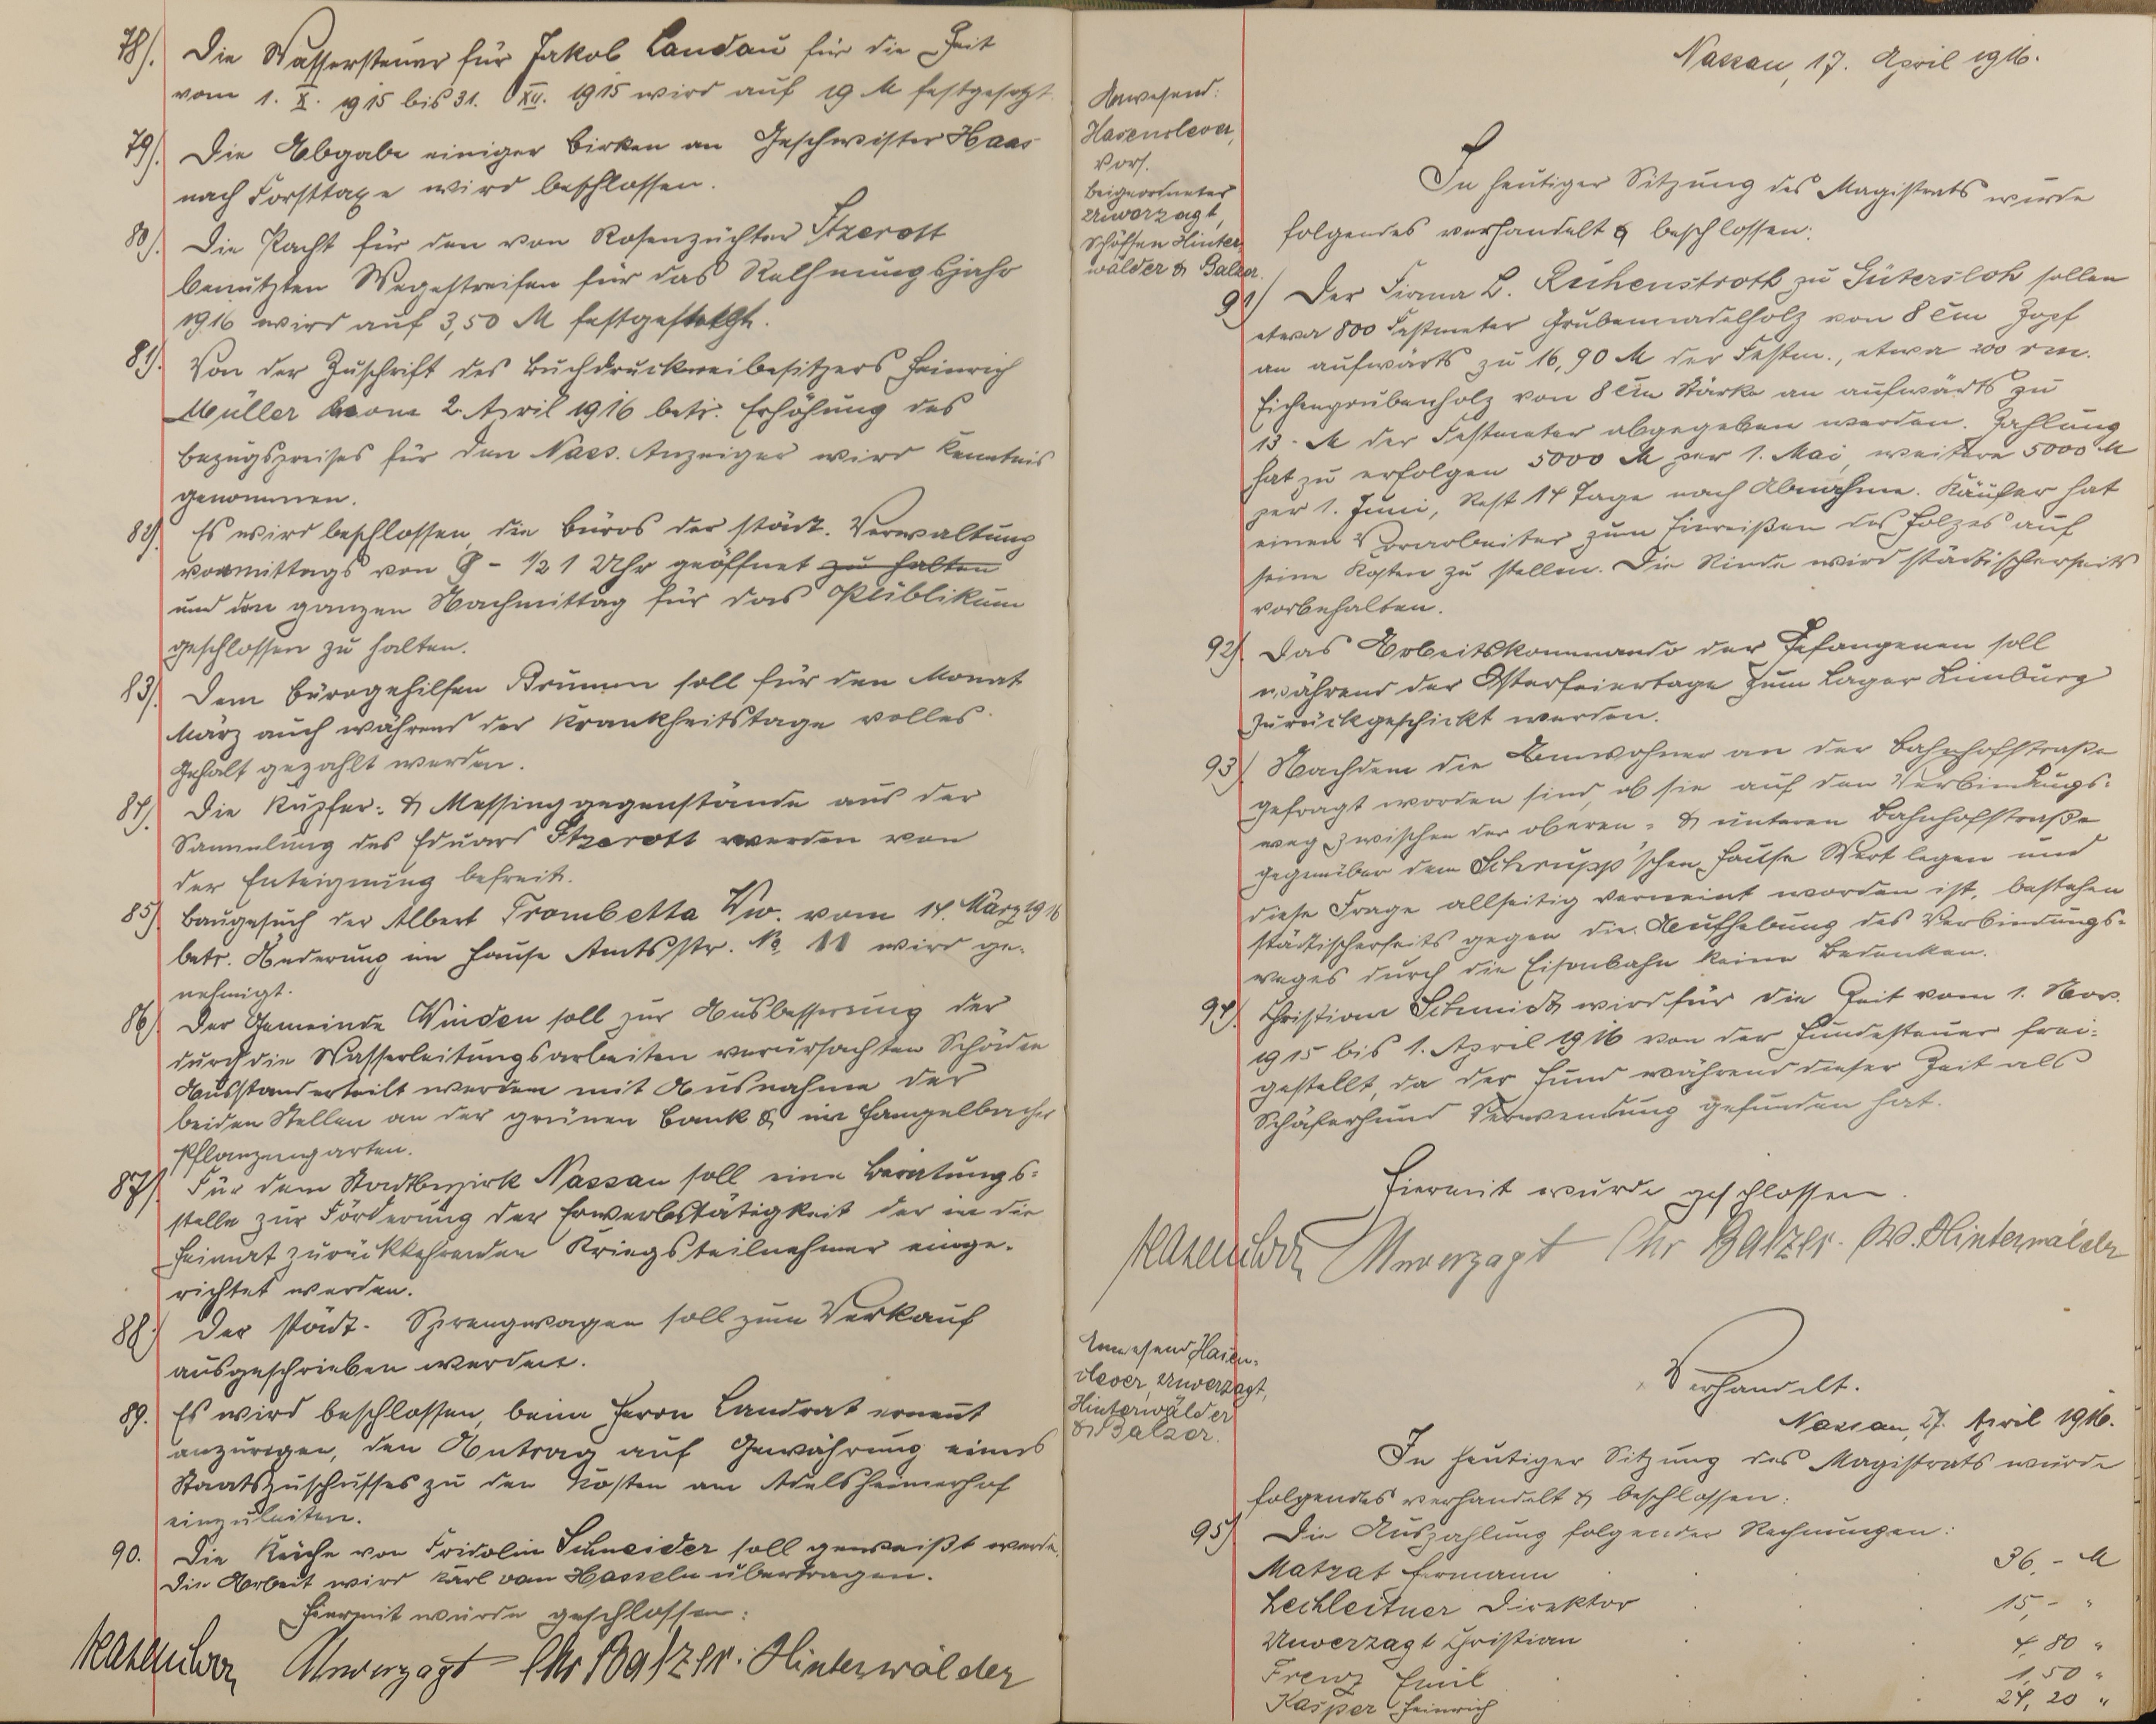 78). Die Wassersteuer für Jakob Landau für die Zeit
vom 1. X. 1915 bis 31. XII. 1915 wird auf 19 M festgesetzt.
79). Die Abgabe einiger Birken an Geschwister Haas
nach Forsttaxe wird beschlossen.
80). Die Pacht für den von Rosenzüchter Itzerott
benutzten Wegestreifen für das Rechnungsjahr
1916 wird auf 3,50 M festgesetzt.
81). Von der Zuschrift des Buchdruckereibesitzers Heinrich
Müller vom 2. April 1916 betr. Erhöhung des
Bezugspreises für den Nass. Anzeiger wird Kenntnis
genommen.
82). Es wird beschlossen, die Büros der städt. Verwaltung
vormittags von 8 - ½ 1 Uhr geöffnet zu halten
und den ganzen Nachmittag für das Publikum
geschlossen zu halten.
83). Dem Bürogehilfen Brumm soll für den Monat
März auch während der Krankheitstage volles
Gehalt gezahlt werden.
84). Die Kupfer- & Messinggegenstände aus der
Sammlung des Eduard Itzerott werden von
der Enteignung befreit.
85). Baugesuch der Albert Trombetta Ww. vom 14. März 1916
betr. Änderung im Hause Amtsstr. No 11 wird ge-
nehmigt.
86) Der Gemeinde Winden soll zur Ausbesserung der
durch die Wasserleitungsarbeiten verursachten Schäden
Ausstand erteilt werden mit Ausnahme der
beiden Stellen an der grünen Bank & im Hangelbacher
Pflanzengarten.
87) Für dem Stadtbezirk Nassau soll eine Beratungs-
stelle zur Förderung der Erwerbstätigkeit der in die
Heimat zurückkehrenden Kriegsteilnehmer einge-
richtet werden.
88.) Der städt. Sprengwagen soll zum Verkauf
ausgeschrieben werden.
89. Es wird beschlossen, beim Herrn Landrat erneut
anzuregen, den Antrag auf Gewährung eines
Staatszuschusses zu den Kosten am Adelsheimerhof
einzuleiten.
90. Die Küche von Fridolin Schneider soll geweißt werden.
Die Arbeit wird Karl von Hasseln übertragen.
Hiermit wurde geschlossen:
Hasenclever Unverzagt Chr Balzer. Hinterwälder
Nassau, 17. April 1916.
Anwesend:
Hasenclever,
Vors.
Beigeordneter
Unverzagt,
Schöffen Hinter-
wälder & Balzer.
In heutiger Sitzung des Magistrats wurde
folgendes verhandelt & beschlossen:
91) Der Firma L. Ruhenstroth zu Gütersloh sollen
etwa 800 Festmeter Grubennadelholz von 8 cm Zopf
an aufwärts zu 16,90 M der Festm., etwa 200 rm.
Eichengrubenholz von 8 cm Stärke an aufwärts zu
13.- M der Festmeter abgegeben werden. Zahlung
hat zu erfolgen 5000 M per 1. Mai, weitere 5000 M
per 1. Juni, Rest 14 Tage nach Abnahme. Käufer hat
einen Vorarbeiter zum Einreißen des Holzes auf
seine Kosten zu stellen. Die Rinde wird städtischerseits
vorbehalten.
92). Das Arbeitskommando der Gefangenen soll
während der Osterfeiertage zum Lager Limburg
zurückgeschickt werden.
93) Nachdem die Anwohner an der Bahnhofstraße
gefragt worden sind, ob sie auf den Verbindungs-
weg zwischen der oberen- & unteren Bahnhofstraße
gegenüber dem Schrupp'schen Hause Wert legen und
diese Frage allseitig verneint worden ist, bestehen
städtischerseits gegen die Aufhebung des Verbindungs-
weges durch die Eisenbahn keine Bedenken.
94). Christian Schmidt wird für die Zeit vom 1. Nov.
1915 bis 1. April 1916 von der Hundesteuer frei-
gestellt, da der Hund während dieser Zeit als
Schäferhund Verwendung gefunden hat.
Hiermit wurde geschlossen.
Hasenclever Unverzagt Chr Balzer. W. Hinterwälder
Verhandelt.
Nassau, 27. April 1916.
Anwesend Hasen-
clever, Unverzagt,
Hinterwälder
& Balzer.
In heutiger Sitzung des Magistrats wurde
folgendes verhandelt & beschlossen:
95) Die Auszahlung folgender Rechnungen:
Matzat Hermann 36,- M
Lechleitner Direktor 15,- "
Unverzagt Christian 4,80 "
Frenz Emil 1,50 "
Kasper Heinrich 24,20 "